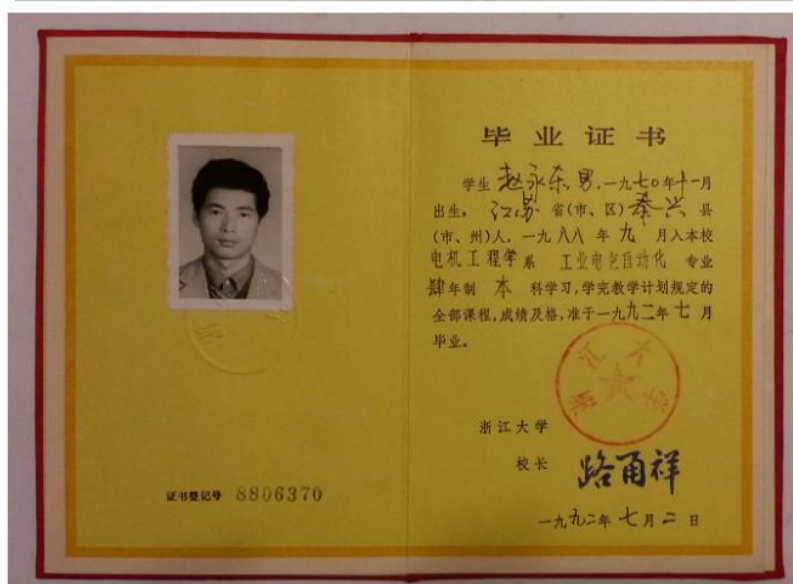 证书登记号 8806370
毕业证书
学生 赵永东, 男, 一九七〇年十一月
出生, 江苏 省(市、区) 泰兴 县
(市、州)人, 一九八八年九月入本校
电机工程学系 工业电气自动化 专业
肆年制 本 科学习, 学完教学计划规定的
全部课程, 成绩及格, 准于一九九二年七月
毕业。
浙江大学
浙江大学
校长 路甬祥
一九九二年七月二日